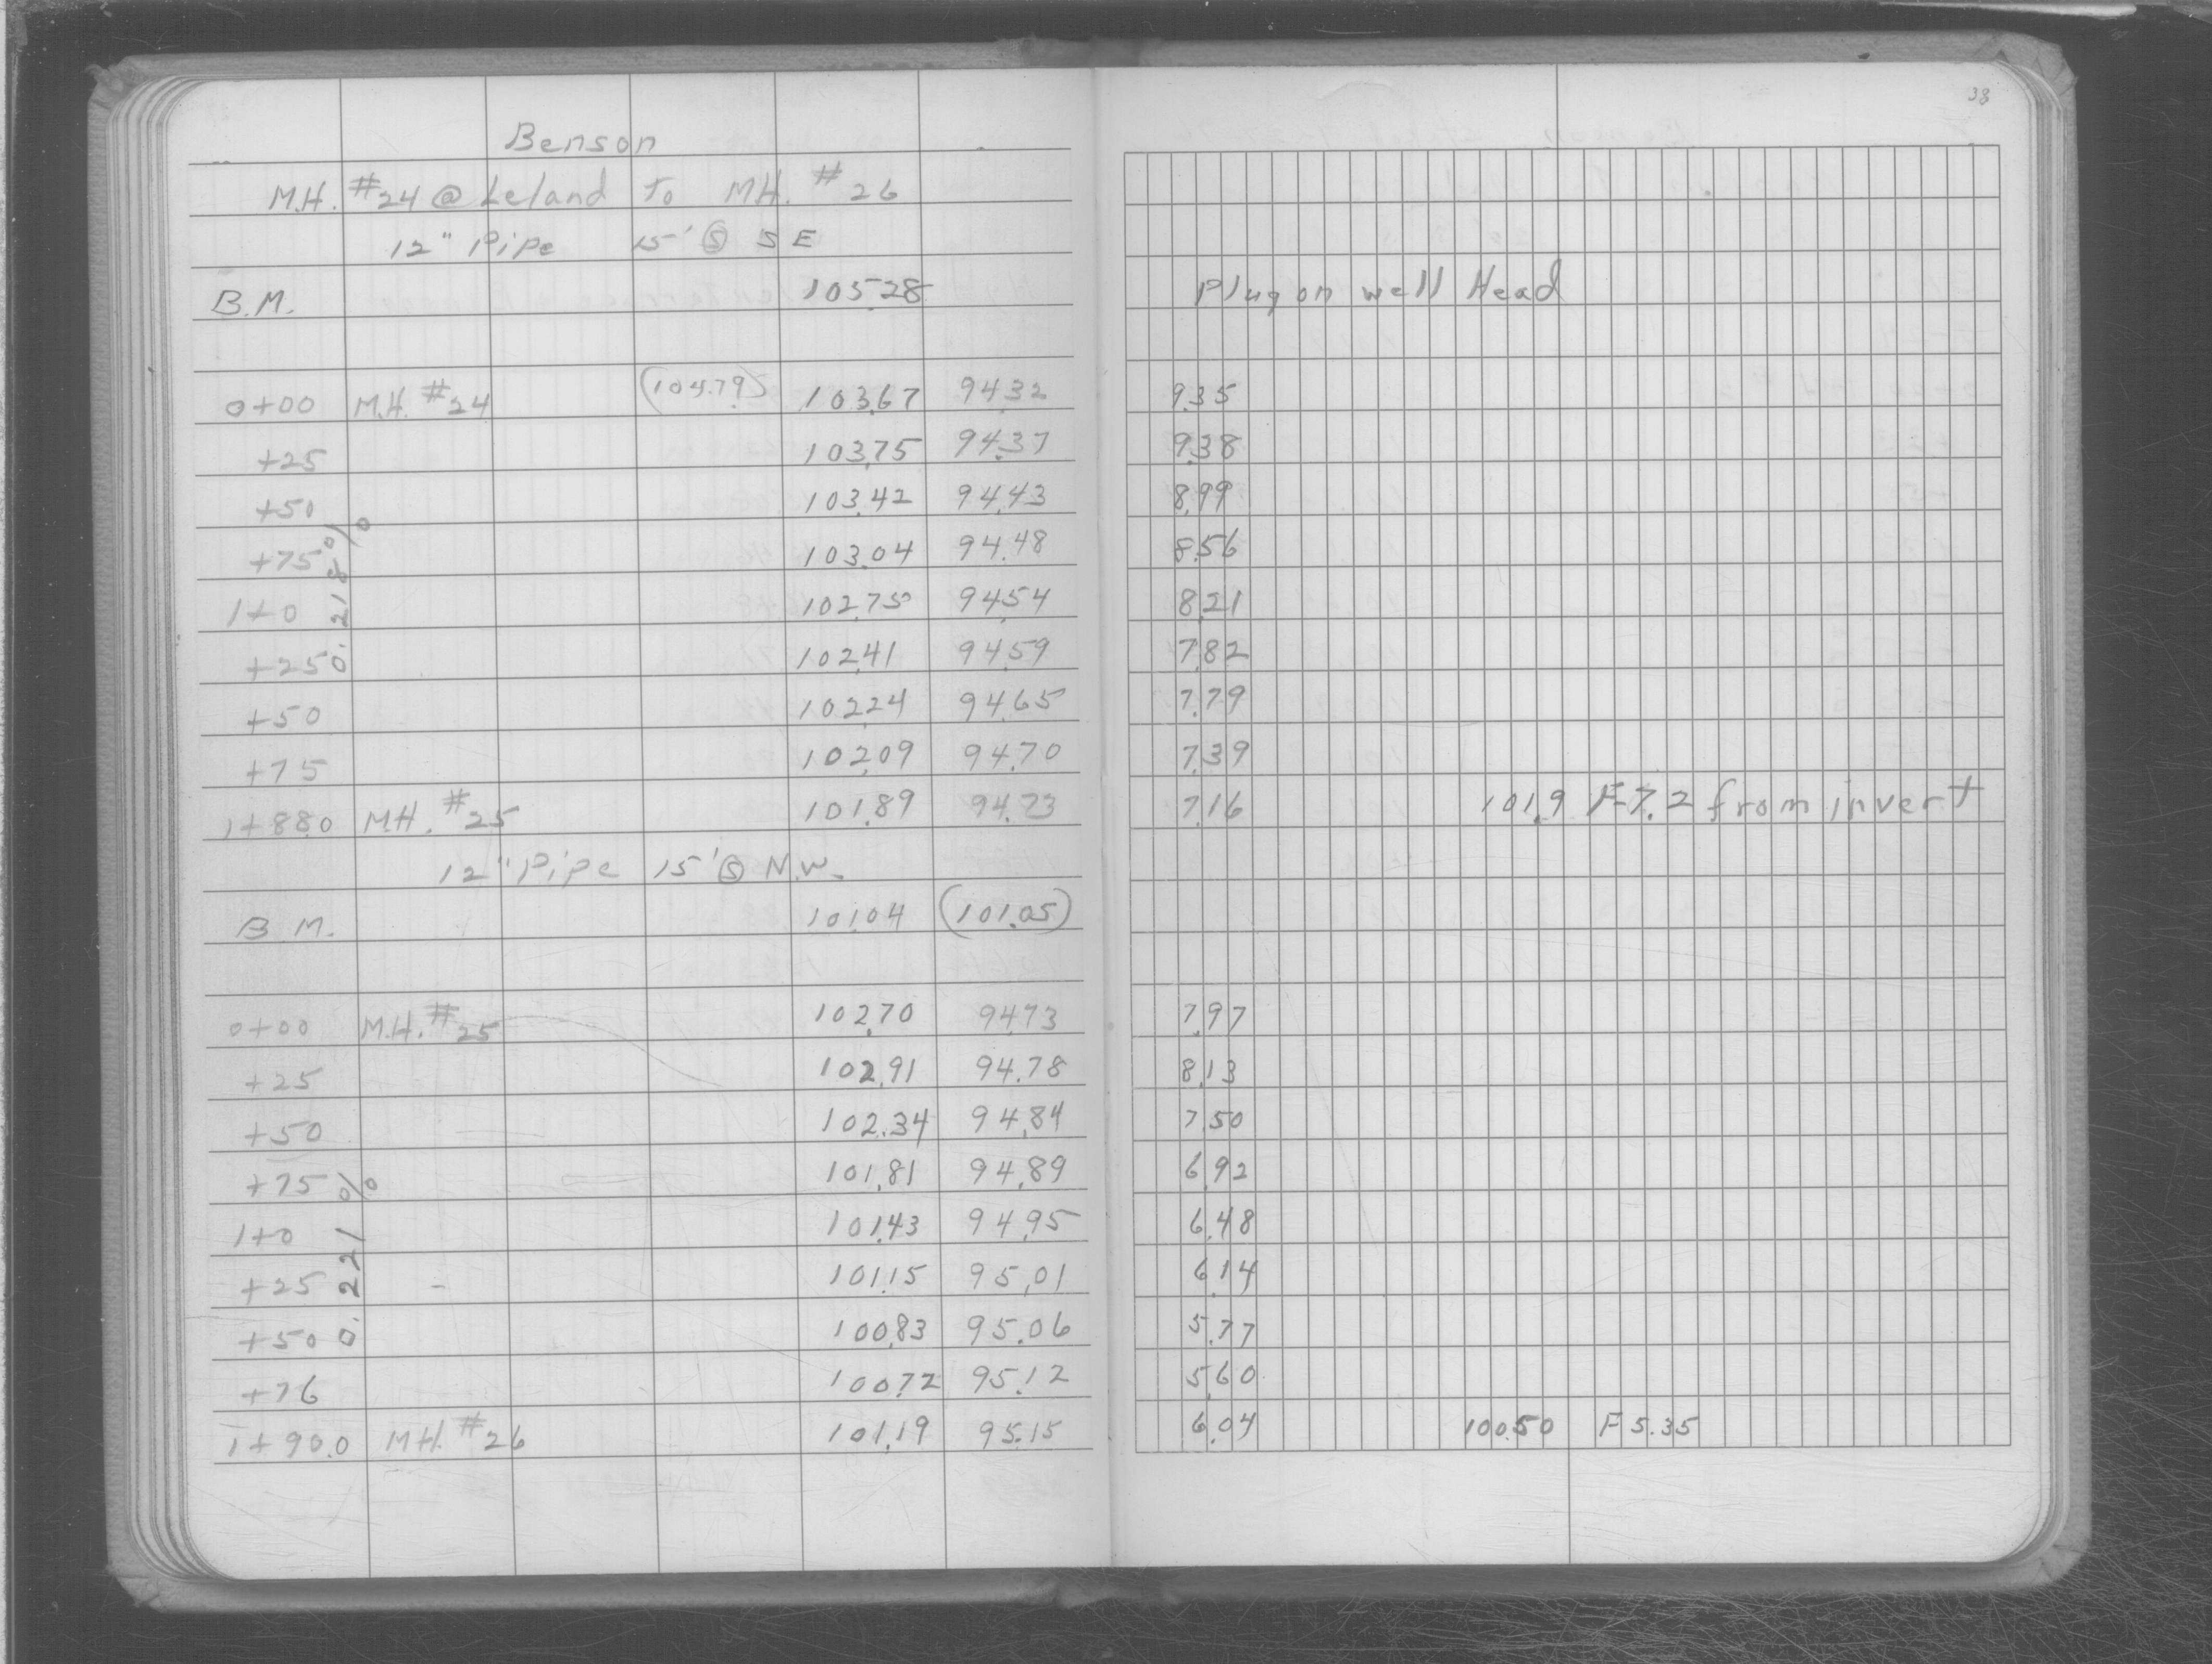 38
Benson
M.H. #24 @ Leland to MH. #26
12" Pipe 15' Ⓢ S E
B.M. 105.28 Plug on well Head
0+00 M.H. #24 (104.79) 103.67 94.32 9.35
+25 103.75 94.37 9.38
+50 103.42 94.43 8.99
+75 103.04 94.48 8.56
1+0 102.75 94.54 8.21
+25 102.41 94.59 7.82
+50 102.24 94.65 7.79
+75 102.09 94.70 7.39
0.218%
1+88.0 M.H. #25 101.89 94.73 7.16 101.9 F-7.2 from invert
12" Pipe 15' Ⓢ N.W.
B.M. 101.04 (101.05)
0+00 M.H. #25 102.70 94.73 7.97
+25 102.91 94.78 8.13
+50 102.34 94.84 7.50
+75 101.81 94.89 6.92
1+0 101.43 94.95 6.48
+25 101.15 95.01 6.14
+50 100.83 95.06 5.77
+76 100.72 95.12 5.60
0.221%
1+90.0 MH. #26 101.19 95.15 6.04 100.50 F 5.35